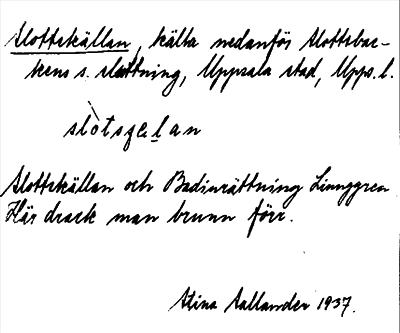 Slottskällan, källa nedanför Slottsbac-
kens s. sluttning, Uppsala stad, Upps. l.
slòtsçelan
Slottskällan och Badinrättning Linnggren
Här drack man brunn förr.
Stina Sallander 1937.